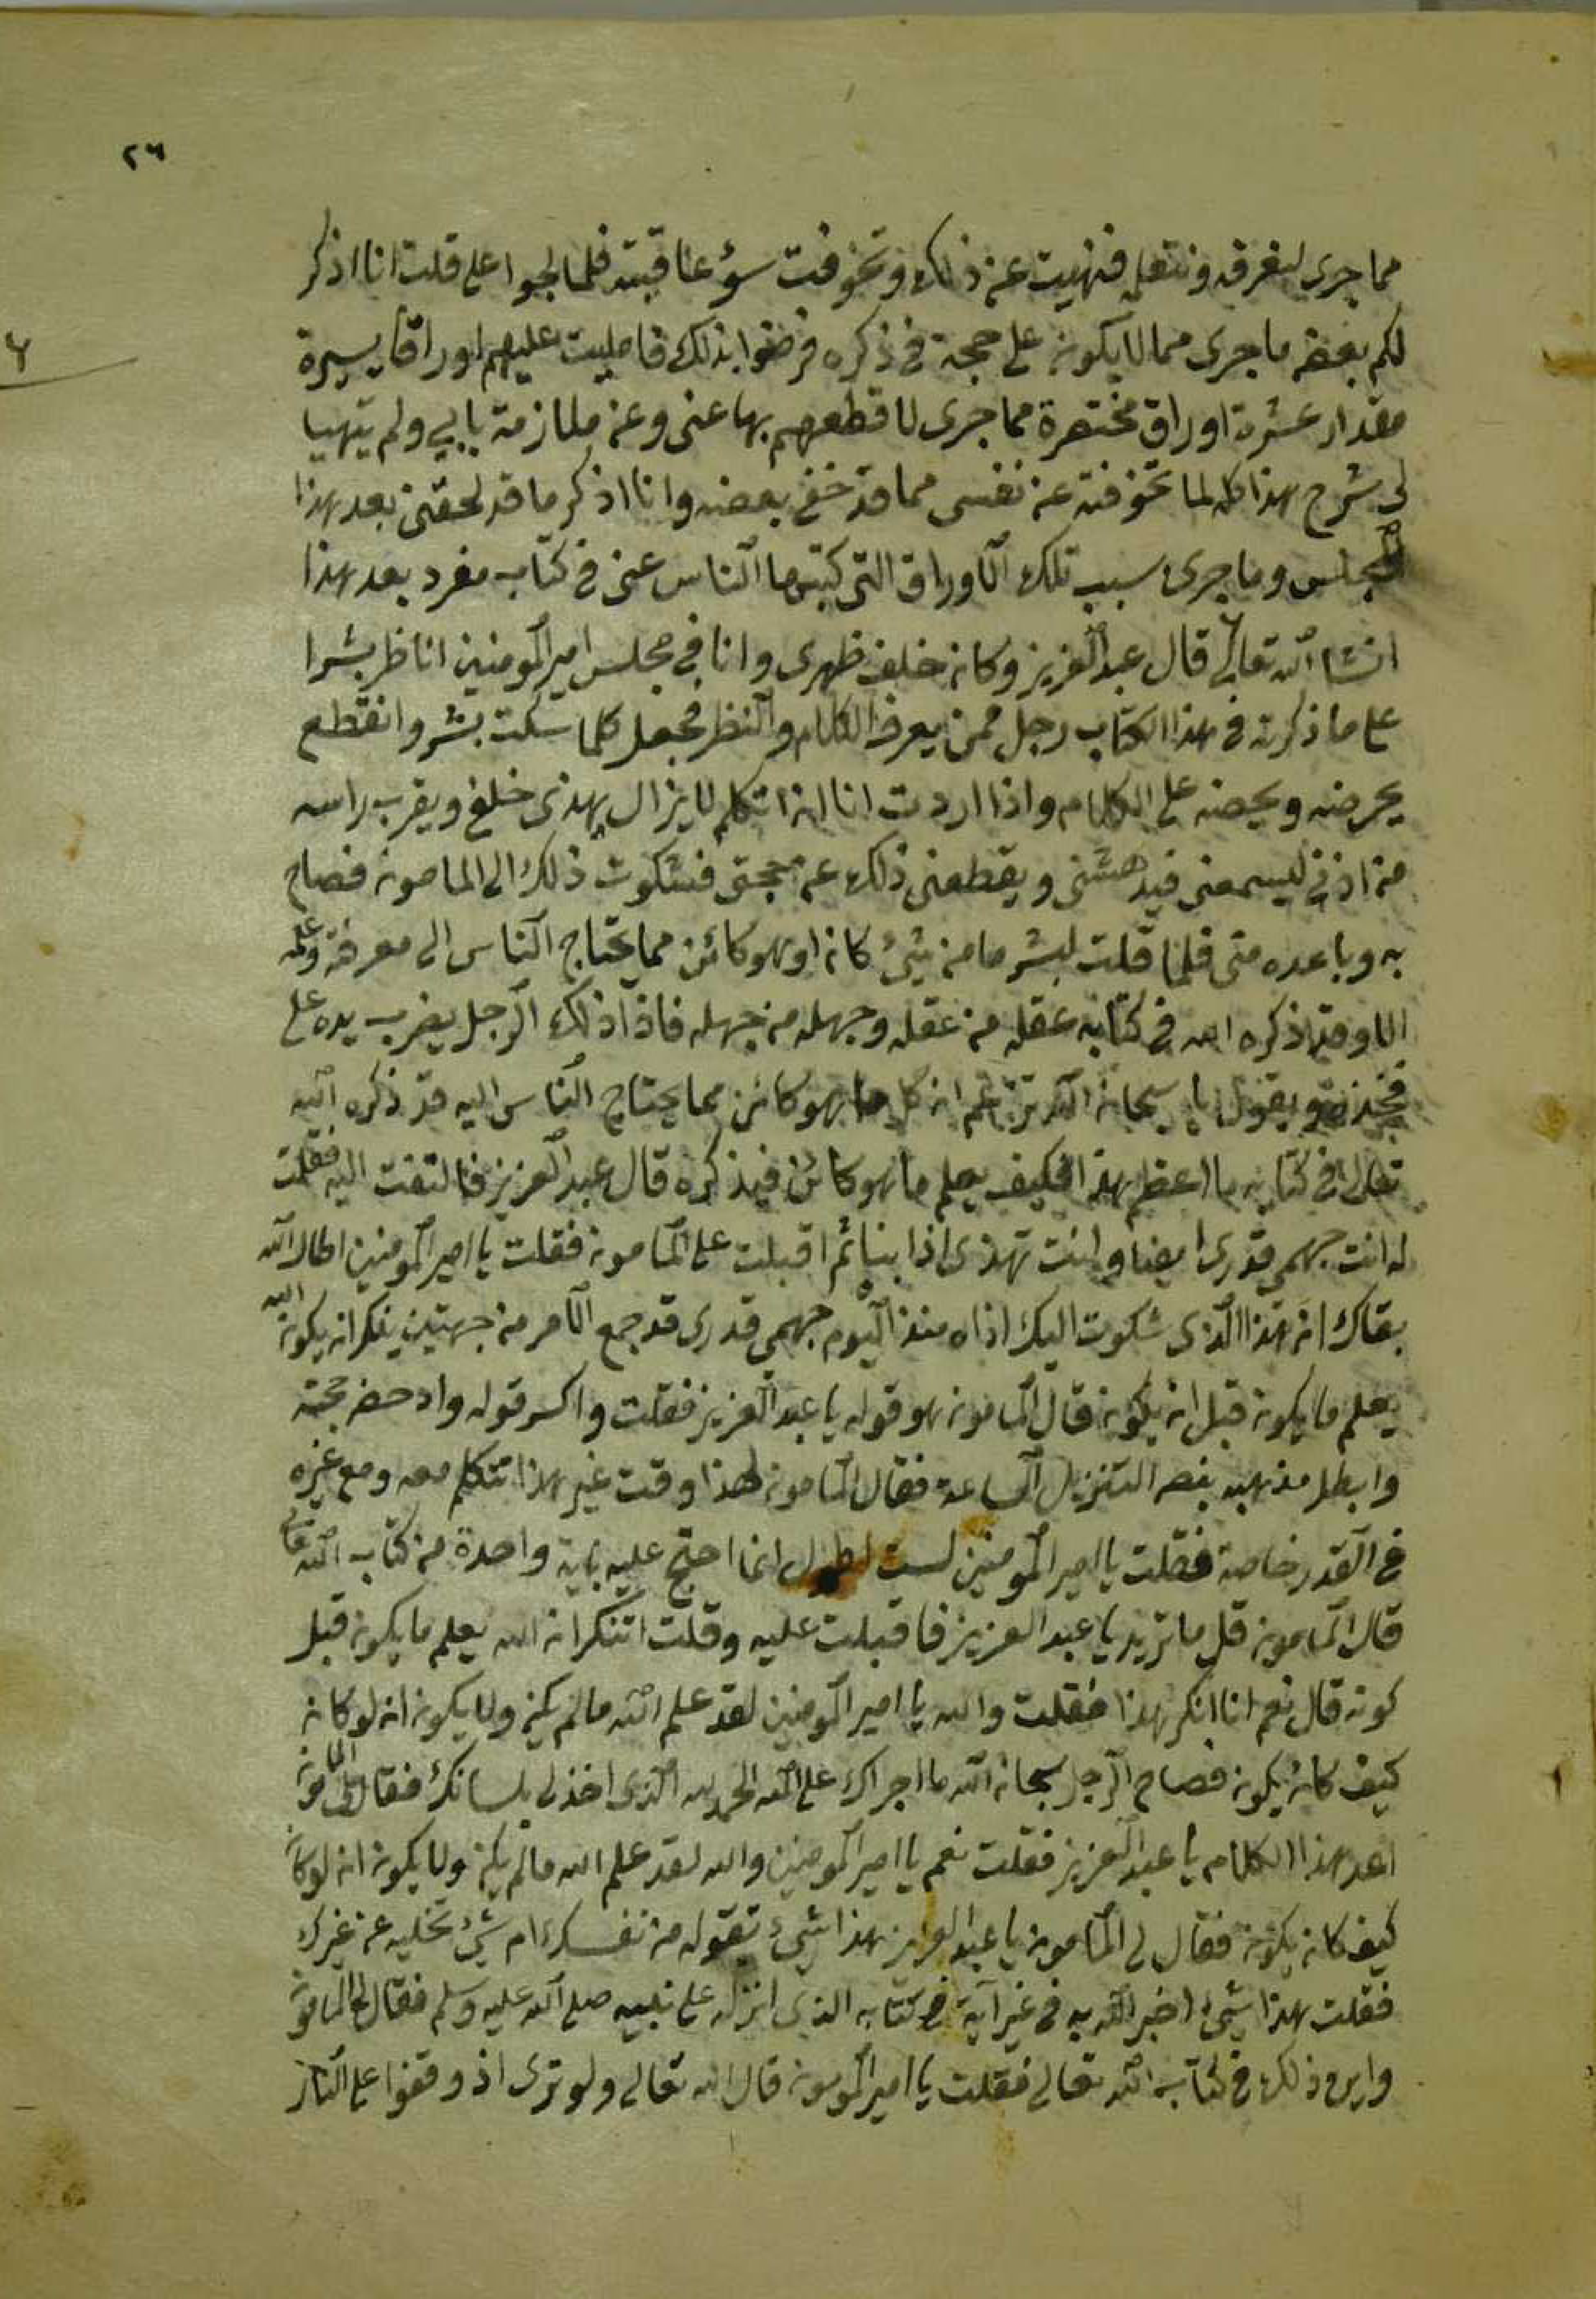 ٢٦
مما جرى لنعرفه ونتعلمه فنهيت عن ذلك وتخوفت سؤ عاقبته فلما لجوا على قلت انا اذكر
لكم بعض ما جرى مما لا يكون على حجة في ذكره فرضوا بذلك فامليت عليهم اوراقا يسيرة
مقدار عشرة اوراق مختصرة مما جرى لا قطعهم بها عنى وعن ملازمة بابي ولم يتهيا
لى شرح هذا كله لما تخوفته عن نفسى مما قد خفى بعضه وانا اذكر ما قد لحقنى بعد هذا
المجلس وما جرى سبب تلك الاوراق التى كتبتها الناس عنى في كتاب مفرد بعد هذا
انشا الله تعالى قال عبد العزيز وكان خلف ظهرى وانا في مجلس امير المومنين اناظر بشرا
على ما ذكرته في هذا الكتاب رجل ممن يعرف الكلام والنظر فجعل كلما سكت بشر وانقطع
يحرضه ويحضه على الكلام واذا اردت انا ان اتكلم لا يزال يهذى خلفى ويقرب راسه
من اذنى ليسمعنى فيدهشنى ويقطعنى ذلك عن حجتى فشكوت ذلك الى المامون فصاح
به وباعده منى فلما قلت لبشر ما من شئ كان او هو كائن مما يحتاج الناس الى معرفته وعلمه
الا وقد ذكره الله في كتابه عقله من عقله وجهله من جهله فاذا ذلك الرجل يضرب يده على
فخذه ويقول يا سبحان الله تزعم ان كل ما هو كائن مما يحتاج الناس اليه قد ذكره الله
تعالى في كتابه ما اعظم هذا فكيف يعلم ما هو كائن فيذكره قال عبد العزيز فالتفت اليه فقلت
له انت جهمي قدرى ايضا وانت تهذى اذا بنا ثم اقبلت على المامون فقلت يا امير المومنين اطال الله
بقاك ان هذا الذى شكوت اليك اذاه منذ اليوم جهمي قدرى قد جمع الامر من جهتين ينكر ان يكون الله
يعلم ما يكون قبل ان يكون قال المامون هو قوله يا عبد العزيز فقلت واكسر قوله وادحض حجته
وابطل مذهبه بنص التنزيل الساعة فقال المامون لهذا وقت غير هذا تتكلم معه ومع غيره
في القدر خاصة فقلت يا امير المومنين لست اطول انما احتج عليه باية واحدة من كتاب الله تعالى
قال المامون قل ما تريد يا عبد العزيز فاقبلت عليه وقلت اتنكر ان الله يعلم ما يكون قبل
كونه قال نعم انا انكر هذا فقلت والله يا امير المومنين لقد علم الله ما لم يكن ولا يكون ان لو كان
كيف كان يكون فصاح الرجل سبحان الله ما اجراك على الله الحمد لله الذى اخذ لى بلسانك فقال لى المامون
اعد هذا الكلام يا عبد العزيز فقلت نعم يا امير المومنين والله لقد علم الله ما لم يكن ولا يكون ان لو كان
كيف كان يكون فقال لى المامون يا عبد العزيز هذا شئ تقوله من نفسك ام شئ تحكيه عن غيرك
فقلت هذا شئ اخبر الله به في غير آية في كتابه الذى انزله على نبيه صلى الله عليه وسلم فقال لى المامون
واين ذلك في كتاب الله تعالى فقلت يا امير المومنين قال الله تعالى ولو ترى اذ وقفوا على النار